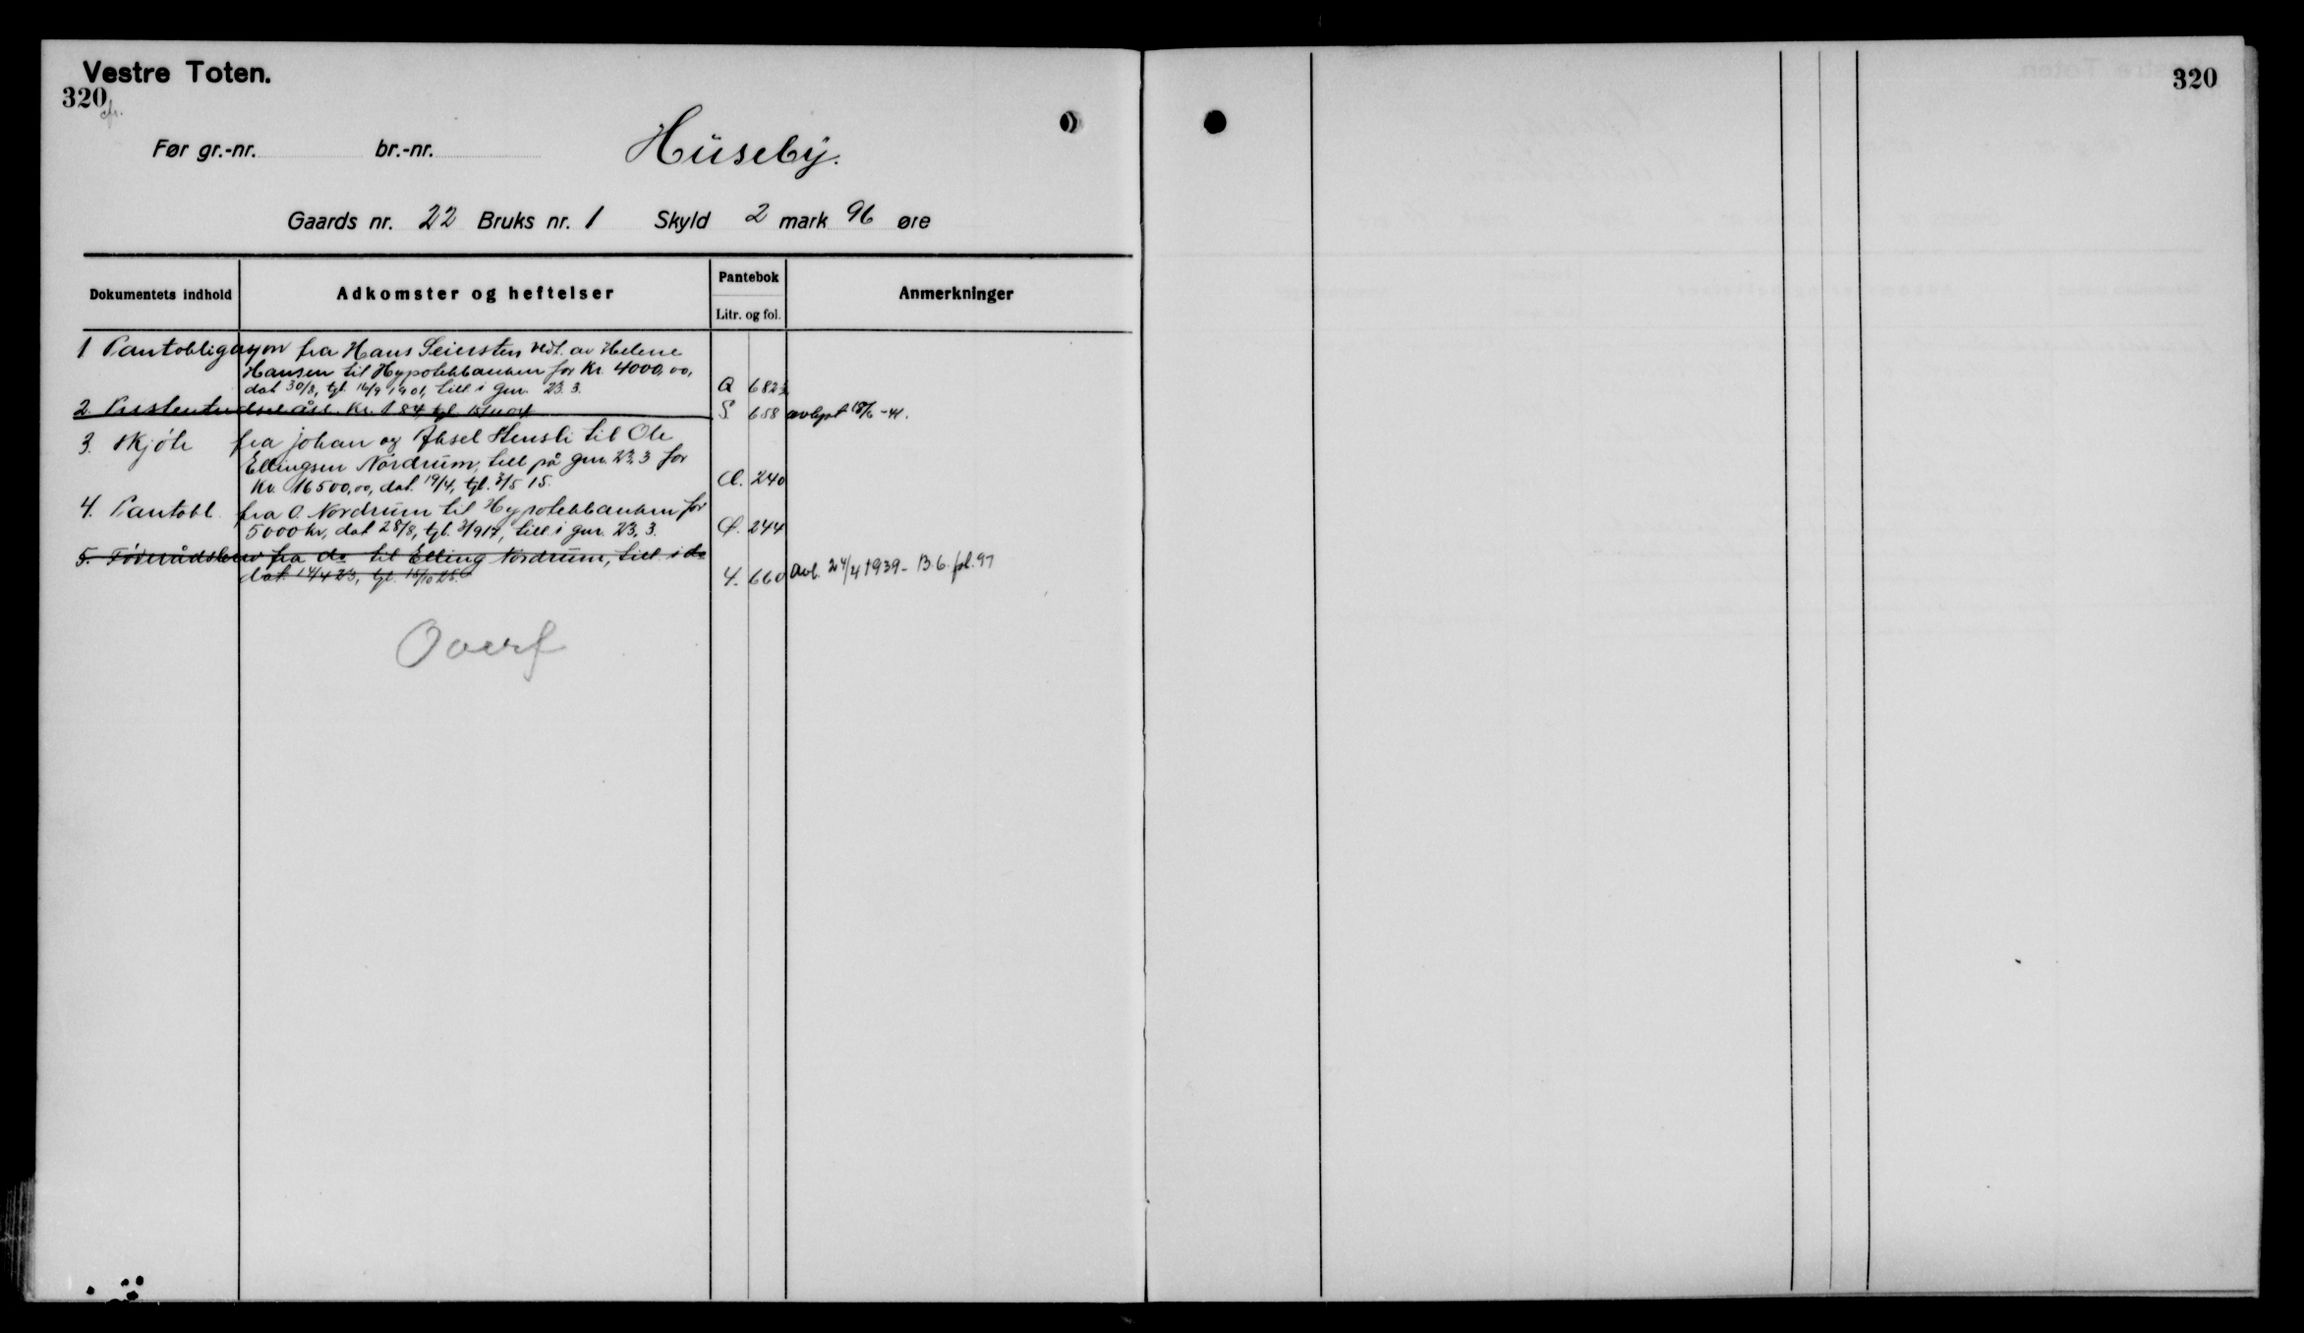 Vestre Toten.
320
320
Før gr.-nr. br.-nr. Huseby.
Gaards nr. 22 Bruks nr. 1 Skyld 2 mark 96 øre
Dokumentets indhold Adkomster og heftelser Pantebok Anmerkninger
Litr. og fol.
1 Pantobligasjon fra Hans Seiersten vedt. av Helene
Hansen til Hypotekbanken for Kr. 4000,00,
dat 30/8, tgl. 16/9 1901, till i gnr. 23.3. Q 682
2. kr. 184, tgl. S. 658 avlyst 18/6-41.
3. Skjøte fra Johan og Aksel Stensli til Ole
Ellingsen Nordrum, till på gnr. 23,3 for
Kr. 16500,00, dat. 19/4, tgl. 3/5 15. 240
4. Pantobl. fra O. Nordrum til Hypotekbanken for
5000 kr, dat 28/8, tgl. 3/917, till i gnr. 23,3. 244
5. Føderådsbrev fra do til Elling Nordrum, till i do
dat. 14/4 23, tgl. 15/10 25. 4. 660 Avl. 24/4 1939 - B. 6. fol. 97
Overf